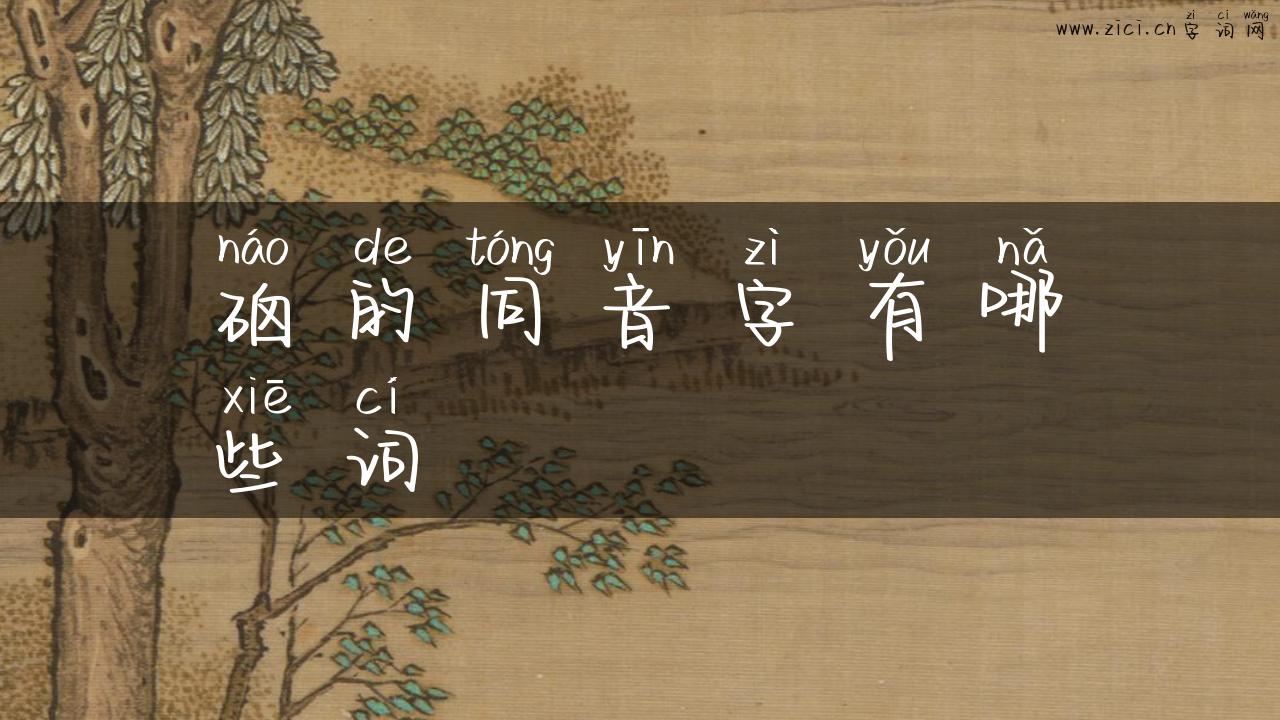 zì cí wǎng
www.zici.cn 字词网
náo de tóng yīn zì yǒu nǎ
硇的同音字有哪
xiē cí
些词